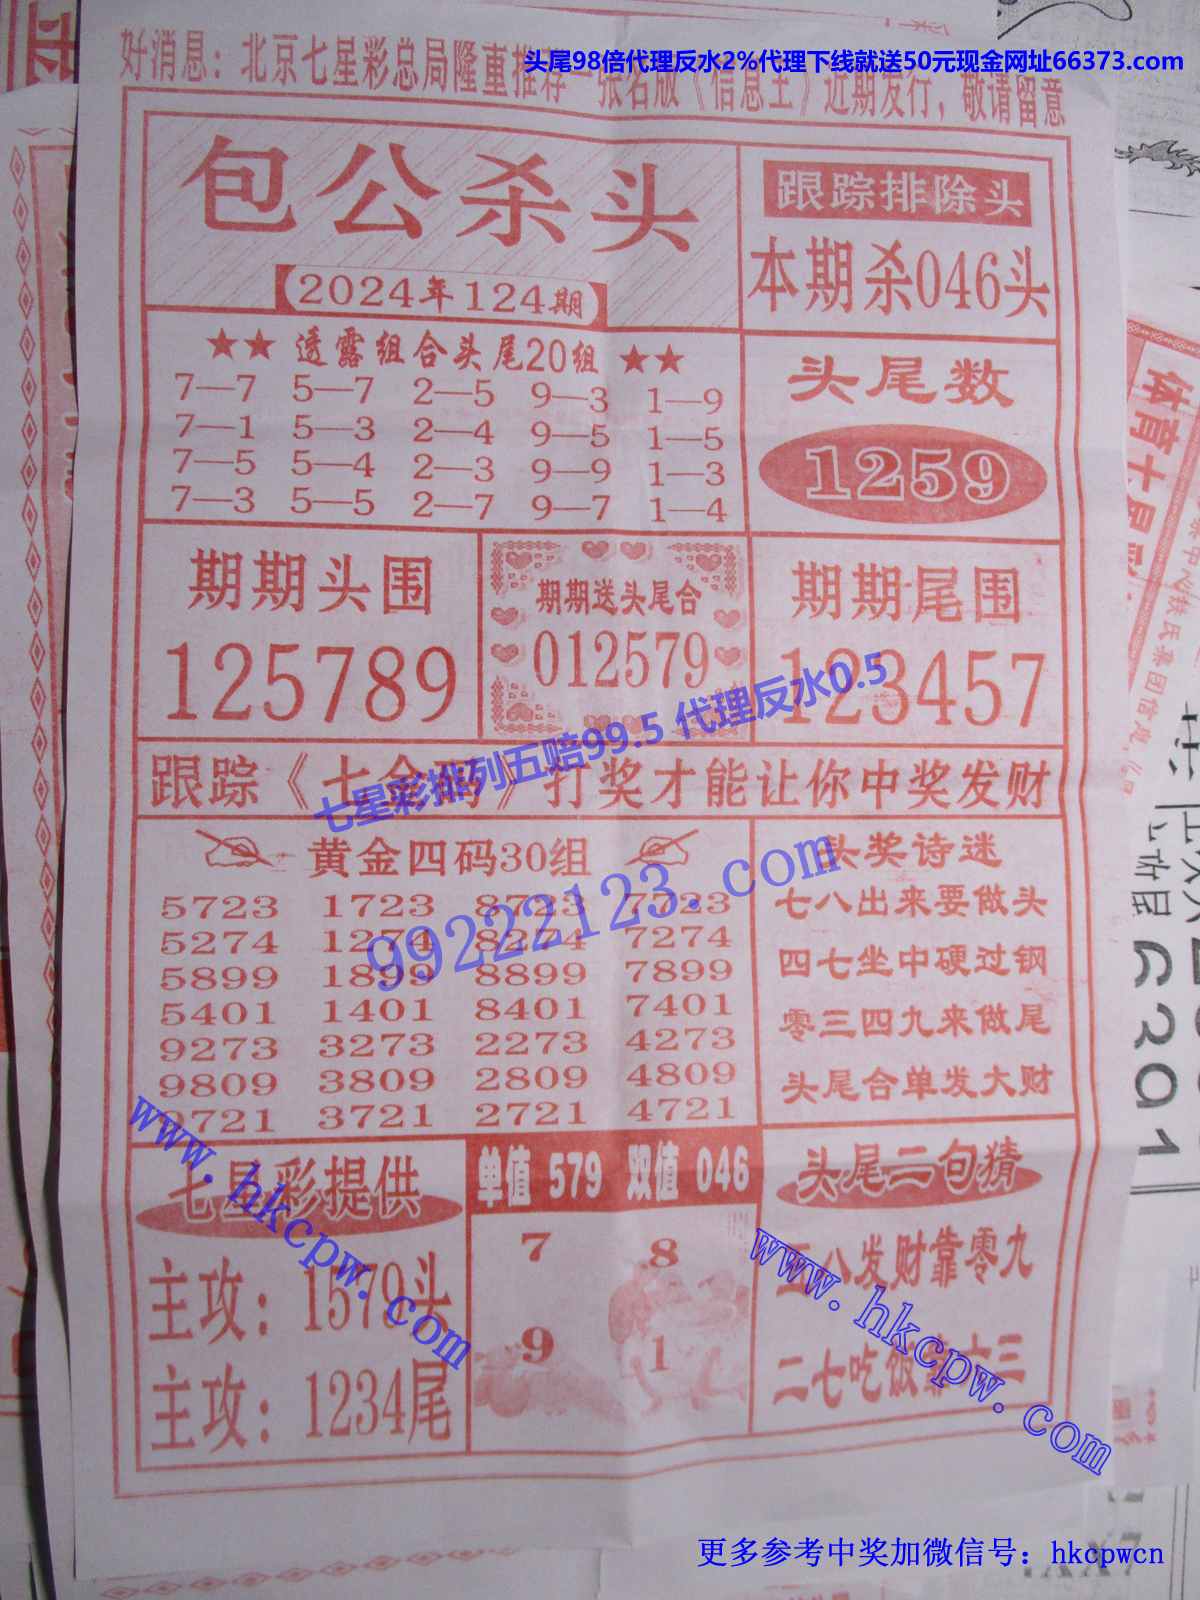 头尾98倍代理反水2%代理下线就送50元现金网址66373.com
好消息：北京七星彩总局隆重推荐一张名版《信息王》近期发行，敬请留意
包公杀头
2024年124期
跟踪排除头
本期杀046头
★★ 透露组合头尾20组 ★★
7—7 5—7 2—5 9—3 1—9
7—1 5—3 2—4 9—5 1—5
7—5 5—4 2—3 9—9 1—3
7—3 5—5 2—7 9—7 1—4
头尾数
1259
期期头围
125789
期期送头尾合
012579
期期尾围
123457
七星彩排列五赔99.5 代理反水0.5
跟踪《七金码》打奖才能让你中奖发财
黄金四码30组
5723 1723 8723 7723
5274 1274 8274 7274
5899 1899 8899 7899
5401 1401 8401 7401
9273 3273 2273 4273
9809 3809 2809 4809
9721 3721 2721 4721
99222123.com
头奖诗迷
七八出来要做头
四七坐中硬过钢
零三四九来做尾
头尾合单发大财
七星彩提供
主攻：1579头
主攻：1234尾
www.hkcpw.com
单值 579 双值 046
7 8
9 1
头尾二句猜
五八发财靠零九
二七吃饭靠六三
www.hkcpw.com
更多参考中奖加微信号：hkcpwcn
体育十星